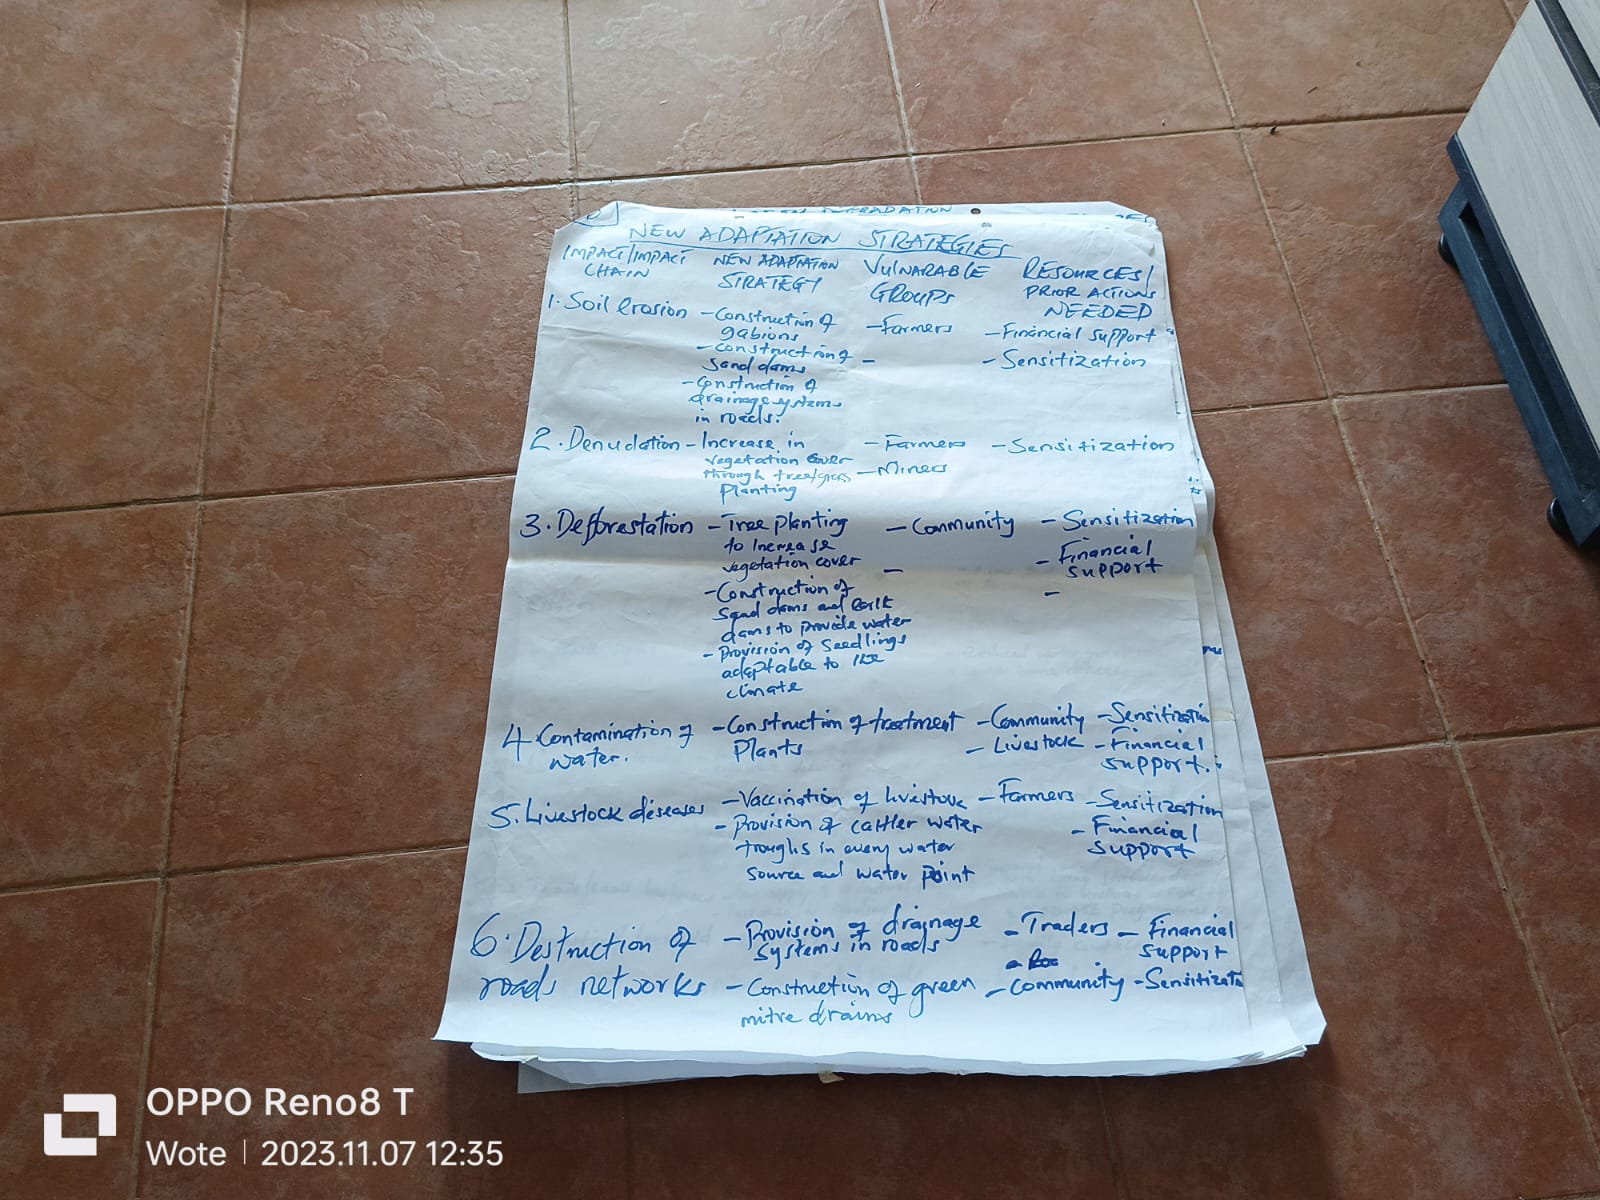 DEGRADATION
NEW ADAPTATION STRATEGIES
IMPACT/IMPACT CHAIN
NEW ADAPTATION STRATEGY
VULNARABLE GROUPS
RESOURCES/ PRIOR ACTIONS NEEDED
1. Soil erosion
- Construction of
gabions
- Construction of
sand dams
- Construction of
drainage systems
in roads.
- Farmers
-
- Financial support
- Sensitization
2. Denudation
- Increase in
vegetation cover
through tree/grass
planting
- Farmers
- Miners
- Sensitization
3. Deforestation
- Tree planting
to increase
vegetation cover
- Construction of
sand dams and
dams to provide water
- Provision of Seedlings
adaptable to the
climate
- Community
-
- Sensitization
- Financial
support
-
4. Contamination of
water.
- Construction of treatment
Plants
- Community
- Livestock
- Sensitization
- Financial
support.
5. Livestock diseases
- Vaccination of livestock
- Provision of cattler water
troughs in every water
source and water point
- Farmers
- Sensitization
- Financial
support
6. Destruction of
roads networks
- Provision of drainage
systems in roads
- Construction of green
mitre drains
- Traders
- Community
- Financial
support
- Sensitizatn
OPPO Reno8 T
Wote | 2023.11.07 12:35